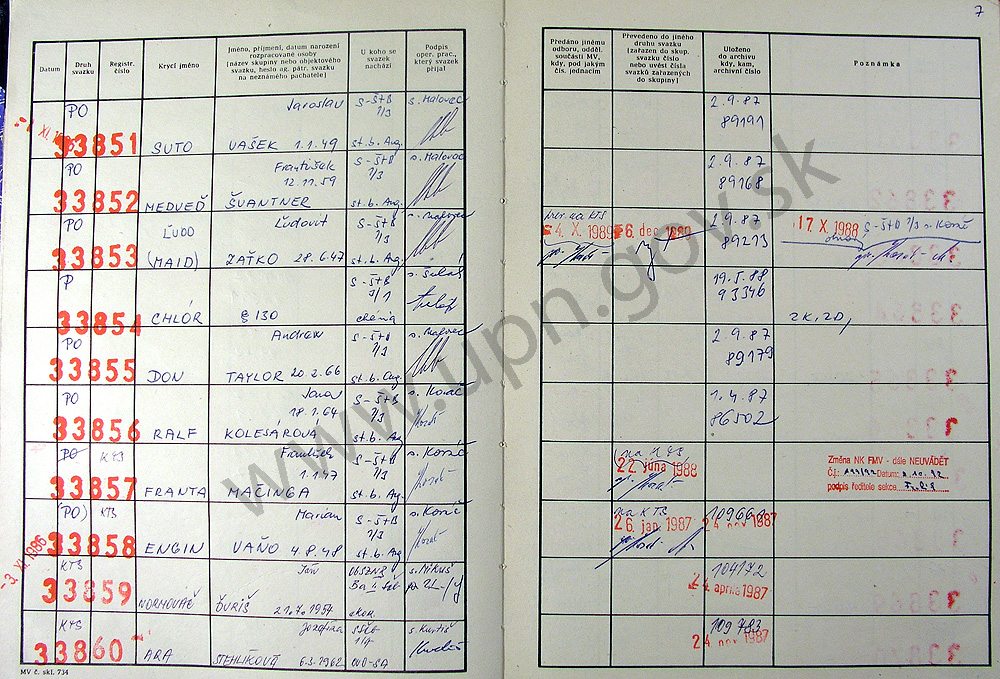 7
Datum
Druh svazku
Registr. číslo
Krycí jméno
Jméno, příjmení, datum narození
rozpracované osoby
(název skupiny nebo objektového
svazku, heslo ag. pátr. svazku
na neznámého pachatele)
U koho se
svazek
nachází
Podpis
oper. prac.,
který svazek
přijal
Předáno jinému
odboru, odděl.
součásti MV,
kdy, pod jakým
čís. jednacím
Převedeno do jiného
druhu svazku
(zařazen do skup.
svazku číslo
nebo uvést čísla
svazků zařazených
do skupiny)
Uloženo
do archivu
kdy, kam,
archivní číslo
Poznámka
PO Jaroslav S-ŠtB s. Malovec 2.9.87
7/3 89191
33851 SUTO VAŠEK 1.1.49 st.b. Aug.
PO František S-ŠtB s. Malovec 2.9.87
12.11.59 7/3 89168
33852 MEDVEĎ ŠVANTNER st.b. Aug.
PO ĽUDO Ľudovít S-ŠtB s. Malovec na KTS 2.9.87 17. X. 1988 S-ŠtB 7/3 s. Korič
7/3 4. X. 1989 6. dec. 1989 89213
33853 (MAID) ZAŤKO 28.6.47 st.b. Aug.
P S-ŠtB 19.5.88
93346
33854 CHLÓR § 130 chémia 2K, 2D,
PO Andrew S-ŠtB s. Malovec 2.9.87
7/3 89179
33855 DON TAYLOR 20.2.66 st.b. Aug.
PO Jana S-ŠtB s. Korič 1.4.87
18.1.64 7/3 86502
33856 RALF KOLESÁROVÁ st.b. Aug
PO KTS František S-ŠtB s. Korič na KTS Změna NK FMV - dále NEUVÁDĚT
1.1.47 7/3 22. júna 1988 Čj.: Datum:
33857 FRANTA MAČINGA st.b. Aug. podpis ředitele sekce
(PO) KTS Marián S-ŠtB s. Korič na KTS
7/3 26. jan. 1987 24 nov 1987
33858 ENGIN VAŇO 4.8.48 st.b. Aug
3. XI. 1986
KTS Ján s. Mikuš 104172
33859 ĎURIŠ 21.7.1954 ekon. 24. apríla 1987
KTS Jozefína s. Kurtiš 109783
24 nov 1987
33860 ARA STEHLÍKOVÁ 6.3.1962
MV č. skl. 734
www.upn.gov.sk